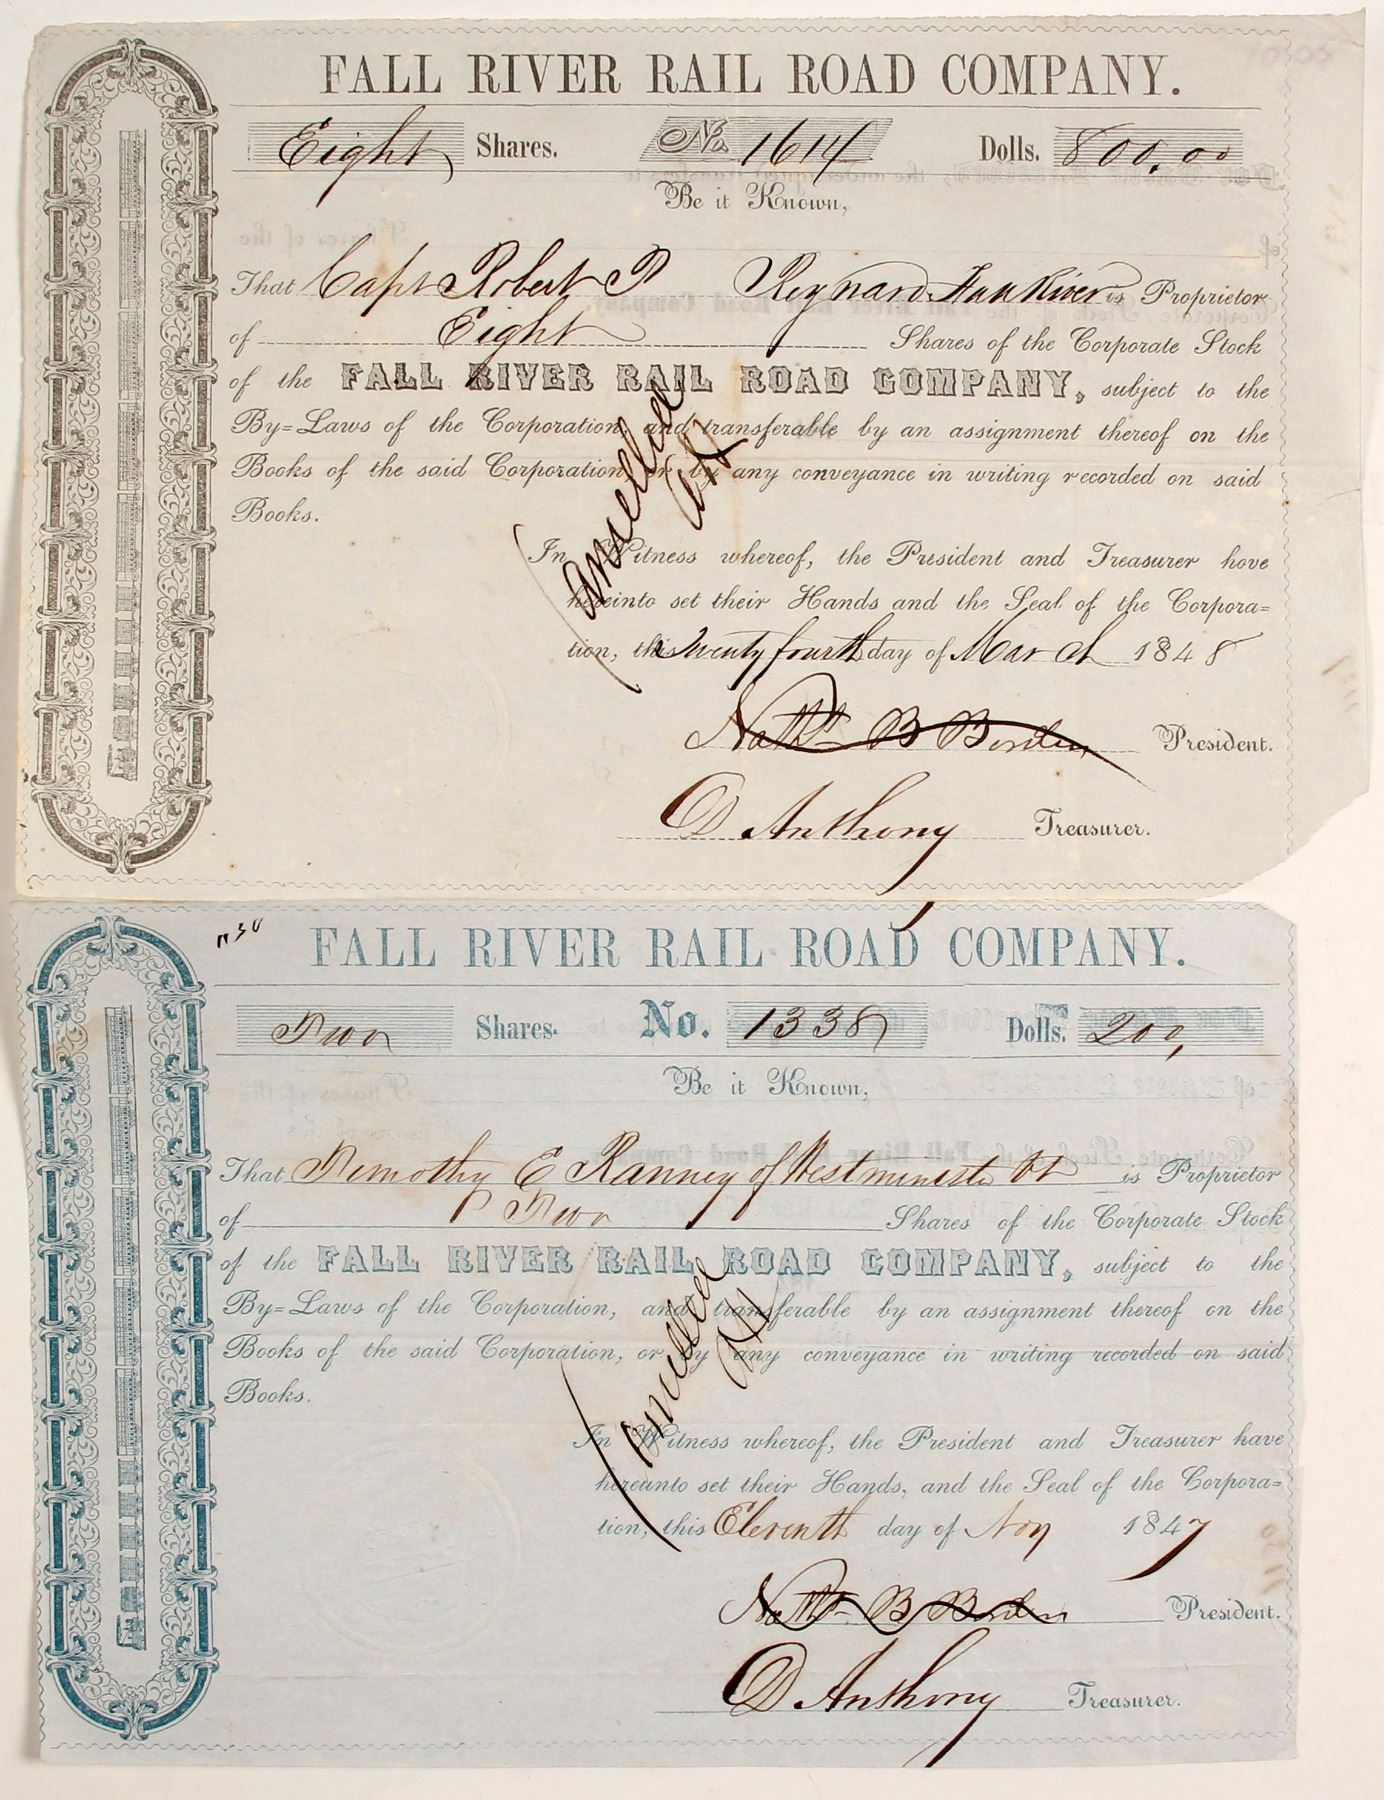 FALL RIVER RAIL ROAD COMPANY.
Eight Shares. No. 1614 Dolls. 800.00
Be it Known,
That Capt Robert P Reynard Fall River is Proprietor
of Eight Shares of the Corporate Stock
of the FALL RIVER RAIL ROAD COMPANY, subject to the
By=Laws of the Corporation, and transferable by an assignment thereof on the
Books of the said Corporation, or by any conveyance in writing recorded on said
Books.
Cancelled
In Witness whereof, the President and Treasurer have
hereinto set their Hands and the Seal of the Corpora=
tion, this Twenty fourth day of March 1848
Nathl B Borden President.
D Anthony Treasurer.
1130
FALL RIVER RAIL ROAD COMPANY.
Two Shares. No. 1338 Dolls. 200,
Be it Known,
That Timothy E Ranney of Westminster Vt is Proprietor
of Two Shares of the Corporate Stock
of the FALL RIVER RAIL ROAD COMPANY, subject to the
By=Laws of the Corporation, and transferable by an assignment thereof on the
Books of the said Corporation, or by any conveyance in writing recorded on said
Books.
Cancelled
In Witness whereof, the President and Treasurer have
hereunto set their Hands, and the Seal of the Corpora=
tion, this Eleventh day of Nov 1847
Nathl B Borden President.
D Anthony Treasurer.